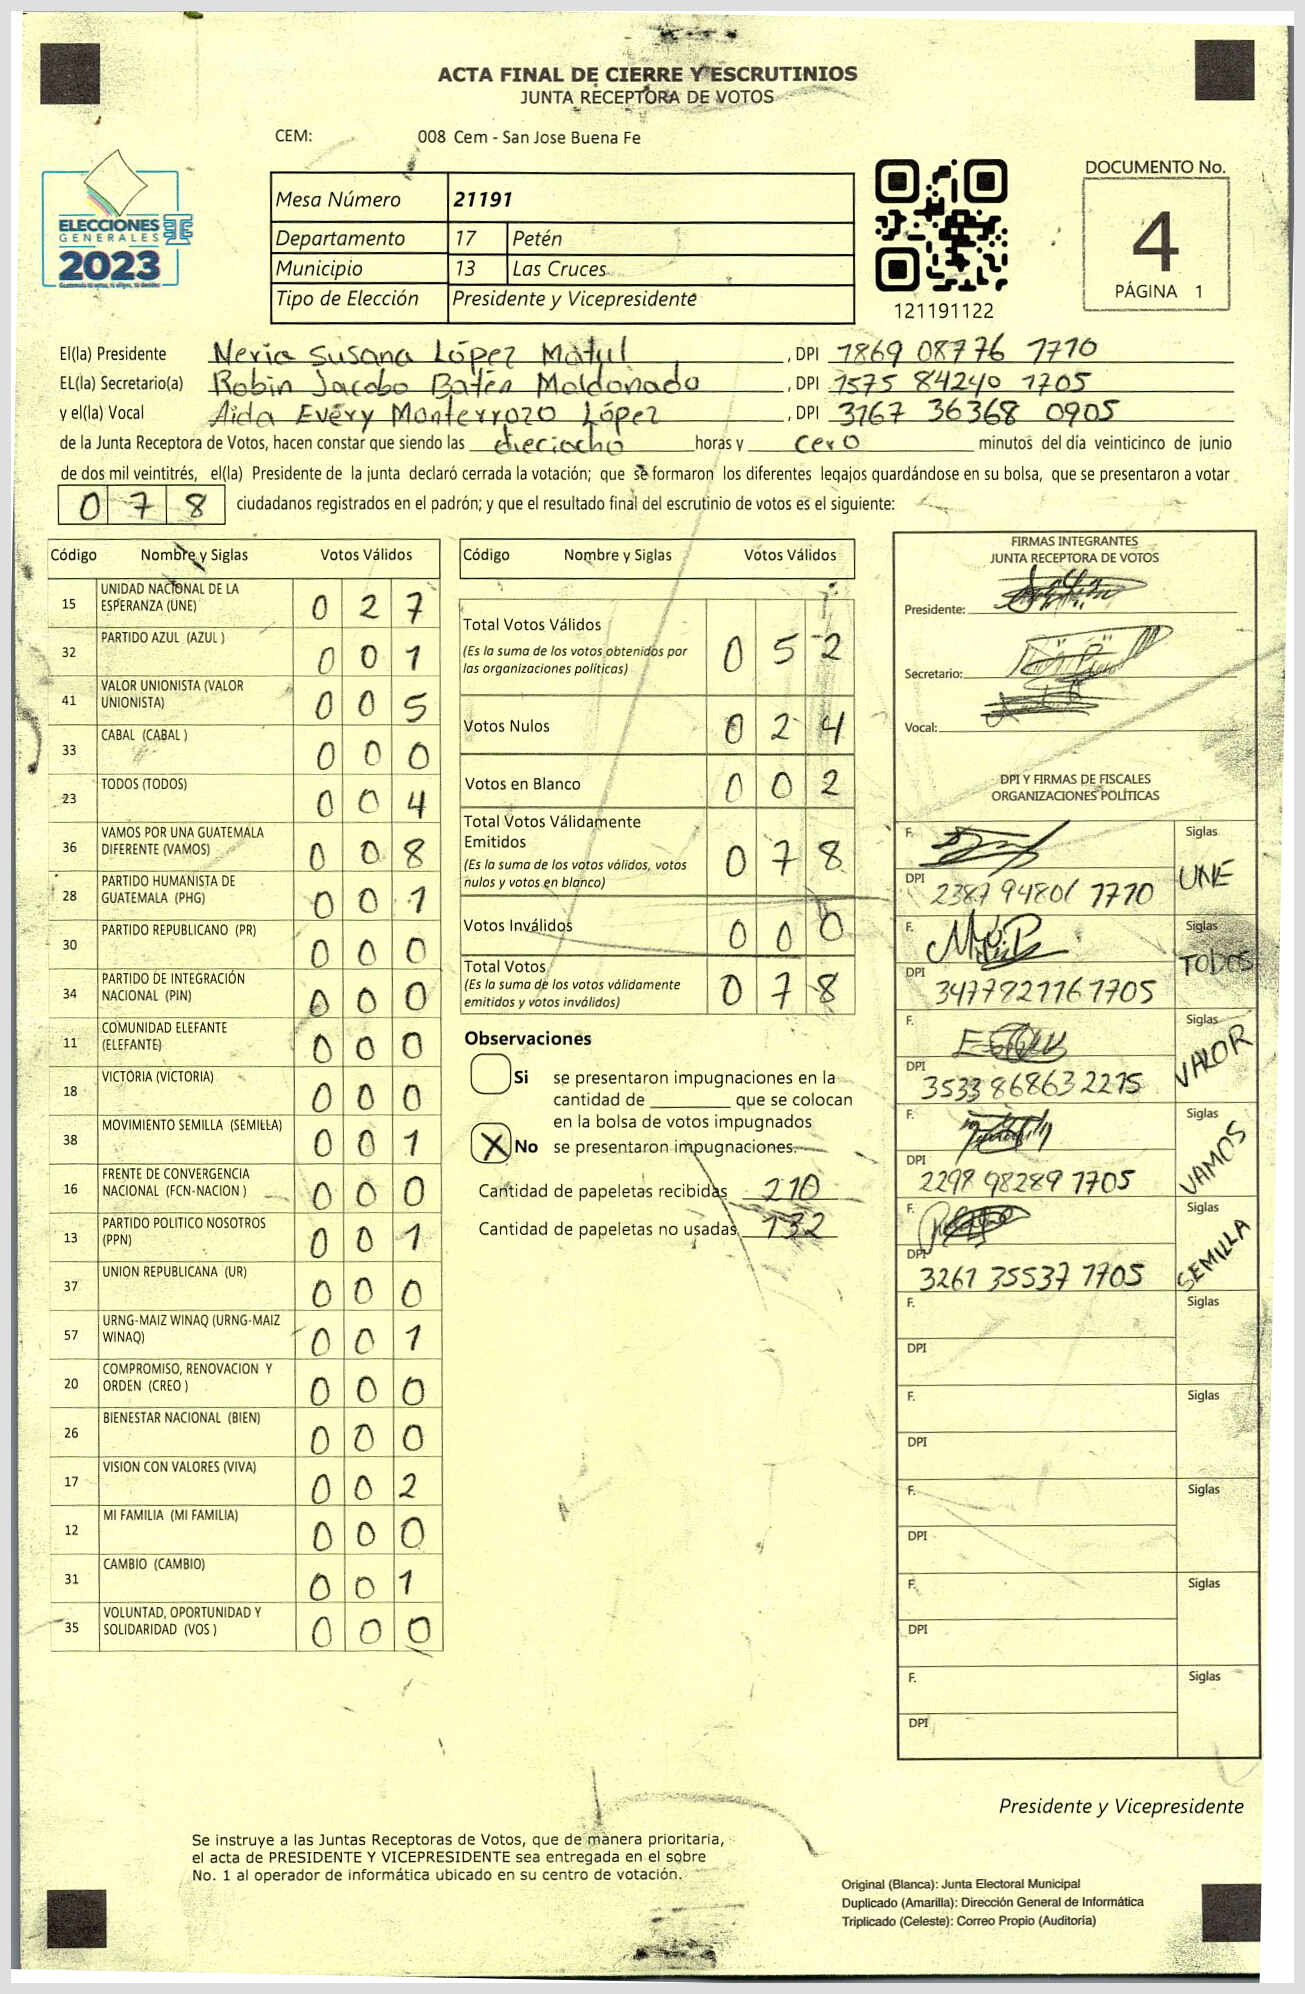 ACTA FINAL DE CIERRE Y ESCRUTINIOS
JUNTA RECEPTORA DE VOTOS
CEM: 008 Cem - San Jose Buena Fe
ELECCIONES
GENERALES
2023
Mesa Número 21191
Departamento 17 Petén
Municipio 13 Las Cruces
Tipo de Elección Presidente y Vicepresidente
121191122
DOCUMENTO No.
4
PÁGINA 1
El(la) Presidente Neria Susana López Matul, DPI 1869 08776 1710
EL(la) Secretario(a) Robin Jacobo Batén Maldonado, DPI 1575 84240 1705
y el(la) Vocal Aida Evéry Monterrozo López, DPI 3167 36368 0905
de la Junta Receptora de Votos, hacen constar que siendo las dieciocho horas y cero minutos del día veinticinco de junio
de dos mil veintitrés, el(la) Presidente de la junta declaró cerrada la votación; que se formaron los diferentes legajos quardándose en su bolsa, que se presentaron a votar
078 ciudadanos registrados en el padrón; y que el resultado final del escrutinio de votos es el siguiente:
Código Nombre y Siglas Votos Válidos
15 UNIDAD NACIONAL DE LA ESPERANZA (UNE) 0 2 7
32 PARTIDO AZUL (AZUL ) 0 0 1
41 VALOR UNIONISTA (VALOR UNIONISTA) 0 0 5
33 CABAL (CABAL ) 0 0 0
23 TODOS (TODOS) 0 0 4
36 VAMOS POR UNA GUATEMALA DIFERENTE (VAMOS) 0 0 8
28 PARTIDO HUMANISTA DE GUATEMALA (PHG) 0 0 1
30 PARTIDO REPUBLICANO (PR) 0 0 0
34 PARTIDO DE INTEGRACIÓN NACIONAL (PIN) 0 0 0
11 COMUNIDAD ELEFANTE (ELEFANTE) 0 0 0
18 VICTORIA (VICTORIA) 0 0 0
38 MOVIMIENTO SEMILLA (SEMILLA) 0 0 1
16 FRENTE DE CONVERGENCIA NACIONAL (FCN-NACION ) 0 0 0
13 PARTIDO POLITICO NOSOTROS (PPN) 0 0 1
37 UNION REPUBLICANA (UR) 0 0 0
57 URNG-MAIZ WINAQ (URNG-MAIZ WINAQ) 0 0 1
20 COMPROMISO, RENOVACION Y ORDEN (CREO ) 0 0 0
26 BIENESTAR NACIONAL (BIEN) 0 0 0
17 VISION CON VALORES (VIVA) 0 0 2
12 MI FAMILIA (MI FAMILIA) 0 0 0
31 CAMBIO (CAMBIO) 0 0 1
35 VOLUNTAD, OPORTUNIDAD Y SOLIDARIDAD (VOS ) 0 0 0
Código Nombre y Siglas Votos Válidos
Total Votos Válidos 0 5 2
(Es la suma de los votos obtenidos por
las organizaciones políticas)
Votos Nulos 0 2 4
Votos en Blanco 0 0 2
Total Votos Válidamente
Emitidos 0 7 8
(Es la suma de los votos válidos, votos
nulos y votos en blanco)
Votos Inválidos 0 0 0
Total Votos 0 7 8
(Es la suma de los votos válidamente
emitidos y votos inválidos)
Observaciones
Si se presentaron impugnaciones en la
cantidad de ________ que se colocan
en la bolsa de votos impugnados
X No se presentaron impugnaciones.
Cantidad de papeletas recibidas 210
Cantidad de papeletas no usadas 132
FIRMAS INTEGRANTES
JUNTA RECEPTORA DE VOTOS
Presidente:
Secretario:
Vocal:
DPI Y FIRMAS DE FISCALES
ORGANIZACIONES POLÍTICAS
F. Siglas UNE
DPI 2387 94801 1710
F. Siglas TODOS
DPI 3477921161705
F. Siglas VALOR
DPI 3533 86863 2215
F. Siglas VAMOS
DPI 2298 98289 1705
F. Siglas SEMILLA
DPI 3261 35537 1705
F. Siglas
DPI
F. Siglas
DPI
F. Siglas
DPI
F. Siglas
DPI
F. Siglas
DPI
Presidente y Vicepresidente
Se instruye a las Juntas Receptoras de Votos, que de manera prioritaria,
el acta de PRESIDENTE Y VICEPRESIDENTE sea entregada en el sobre
No. 1 al operador de informática ubicado en su centro de votación.
Original (Blanca): Junta Electoral Municipal
Duplicado (Amarilla): Dirección General de Informática
Triplicado (Celeste): Correo Propio (Auditoría)